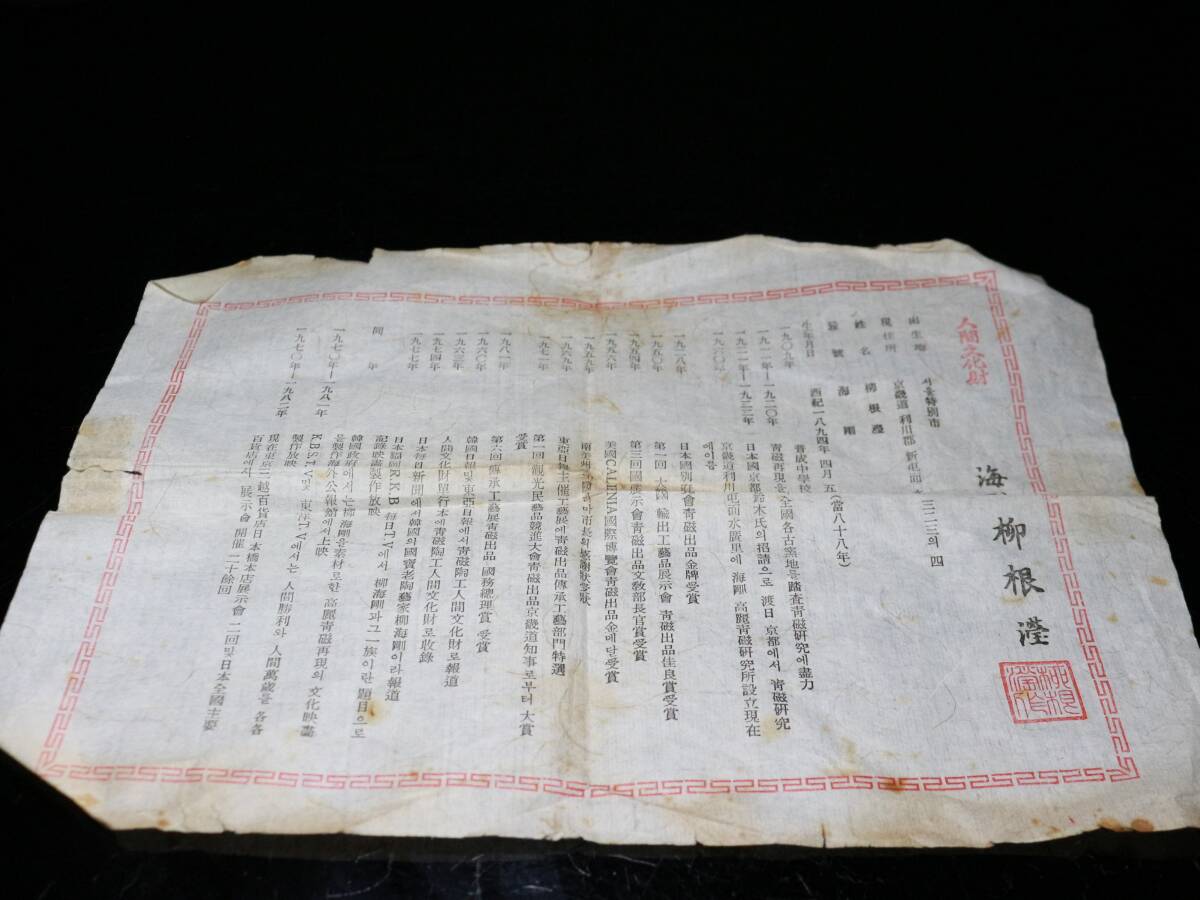 人間文化財
海 柳根瀅
出生地 서울特別市
現住所 京畿道 利川郡 新屯面 三二三의 四
姓名 柳根瀅
雅號 海剛
生年月日 西紀一八九四年 四月 五(當八十八年)
一九〇九年 普成中學校
一九一一年—一九二〇年 靑磁再現을全國各古窯地를踏査靑磁硏究에盡力
一九二一年—一九二三年 日本國京都鈴木氏의招請으로 渡日 京都에서 靑磁硏究
一九六〇年 京畿道利川屯面水廣里에 海剛 高麗靑磁硏究所設立現在
에이름
一九二八年 日本國別府會靑磁出品金牌受賞
一九五〇年 第一回 大韓國輸出工藝品展示會 靑磁出品佳良賞受賞
一九五四年 第三回國産示會靑磁出品文敎部長官賞受賞
一九五六年 美國CALLENIA國際博覽會靑磁出品金메달受賞
一九五九年 南美 市長의感謝狀受狀
一九六九年 東亞日報主催工藝展에靑磁出品傳承工藝部門特選
一九七一年 第一回觀光民藝品競進大會靑磁出品京畿道知事로부터 大賞
受賞
一九八一年 第六回傳承工藝展靑磁出品 國務總理賞 受賞
一九六〇年 韓國日報및東亞日報에서靑磁陶工人間文化財로報道
一九六三年 人間文化財單行本에靑磁陶工人間文化財로收錄
一九七四年 日本每日新聞에서韓國의國寶老陶藝家柳海剛이라報道
一九七七年 日本福岡RKB每日TV에서 柳海剛과그一族이란題目으로
記錄映畵製作放映
同年 韓國政府에서는柳海剛을素材로한 高麗靑磁再現의文化映畵
를製作海外公報館에서上映
一九七〇年—一九八一年 KBS.TV및 東洋TV에서는 人間勝利와 人間萬歲를 各各
製作放映
一九七〇年—一九八二年 現在東京三越百貨店日本橋本店展示會 二回및日本全國主要
百貨店에서 展示會 開催 二十餘回